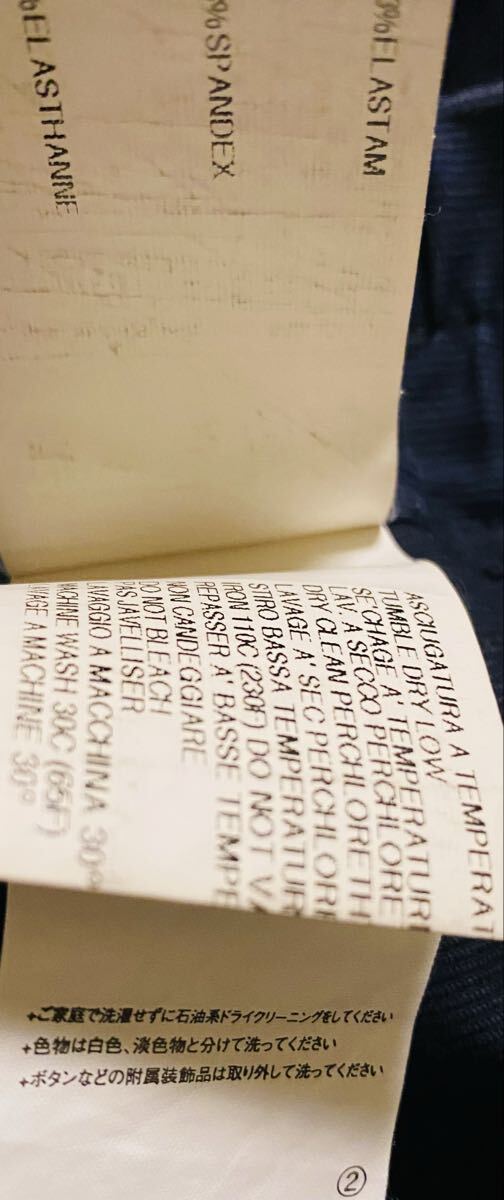 %ELASTAM
%SPANDEX
%ELASTHANNE
ASCIUGATURA A TEMPERAT
TUMBLE DRY LOW
SE'CHAGE A' TEMPERATURE
LAV. A SECCO PERCHLORET
DRY CLEAN PERCHLORETH
LAVAGE A' SEC PERCHLORE
STIRO BASSA TEMPERATUR
IRON 110C (230F) DO NOT
REPASSER A' BASSE TEMPE
NON CANDEGGIARE
DO NOT BLEACH
PAS JAVELLISER
LAVAGGIO A MACCHINA 30°
MACHINE WASH 30C (65F)
VAGE A MACHINE 30°
+ご家庭で洗濯せずに石油系ドライクリーニングをしてください
+色物は白色、淡色物と分けて洗ってください
+ボタンなどの附属装飾品は取り外して洗ってください
②